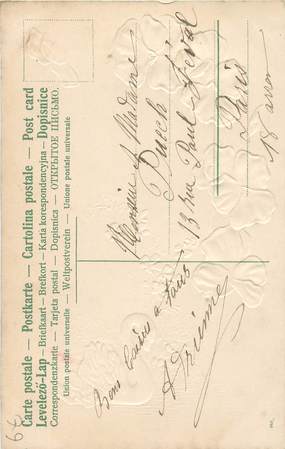 Carte postale — Postkarte — Cartolina postale — Post card
Levelező-Lap — Briefkaart — Brefkort — Karta korespondencyjna — Dopisnice
Correspondenzkarte — Tarjeta postal — Dopisnica — ОТКРЫТОЕ ПИСЬМО.
Union postale universelle — Weltpostverein — Unione postale universale
Monsieur et Madame
13 rue Paul Féval
Paris
18 arron
Bons baisers a tous
6€